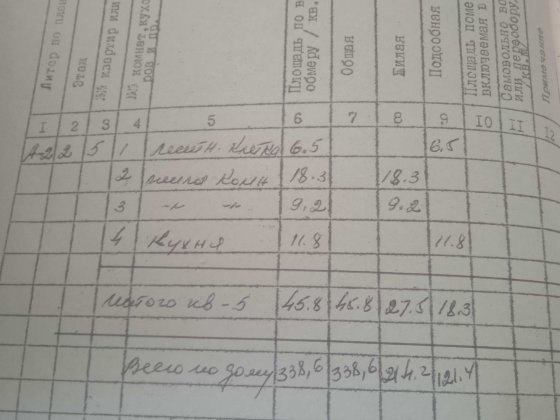 Литер по плану
Этаж
№№ квартир или
№№ комнат, кухо
ров и пр.
Площадь по в
обмеру / кв.
Общая
Жилая
Подсобная
Площадь поме
включаемая в
Самовольно во
или переобору
кв.м/
Примечание
I 2 3 4 5 6 7 8 9 IO II I2
А-2 2 5 1 лестн. клетка 6.5 6.5
2 жилая комн 18.3 18.3
3 -"- -"- 9.2 9.2
4 кухня 11.8 11.8
Итого кв-5 45.8 45.8 27.5 18.3
Всего по дому 338,6 338,6 214.2 121.4